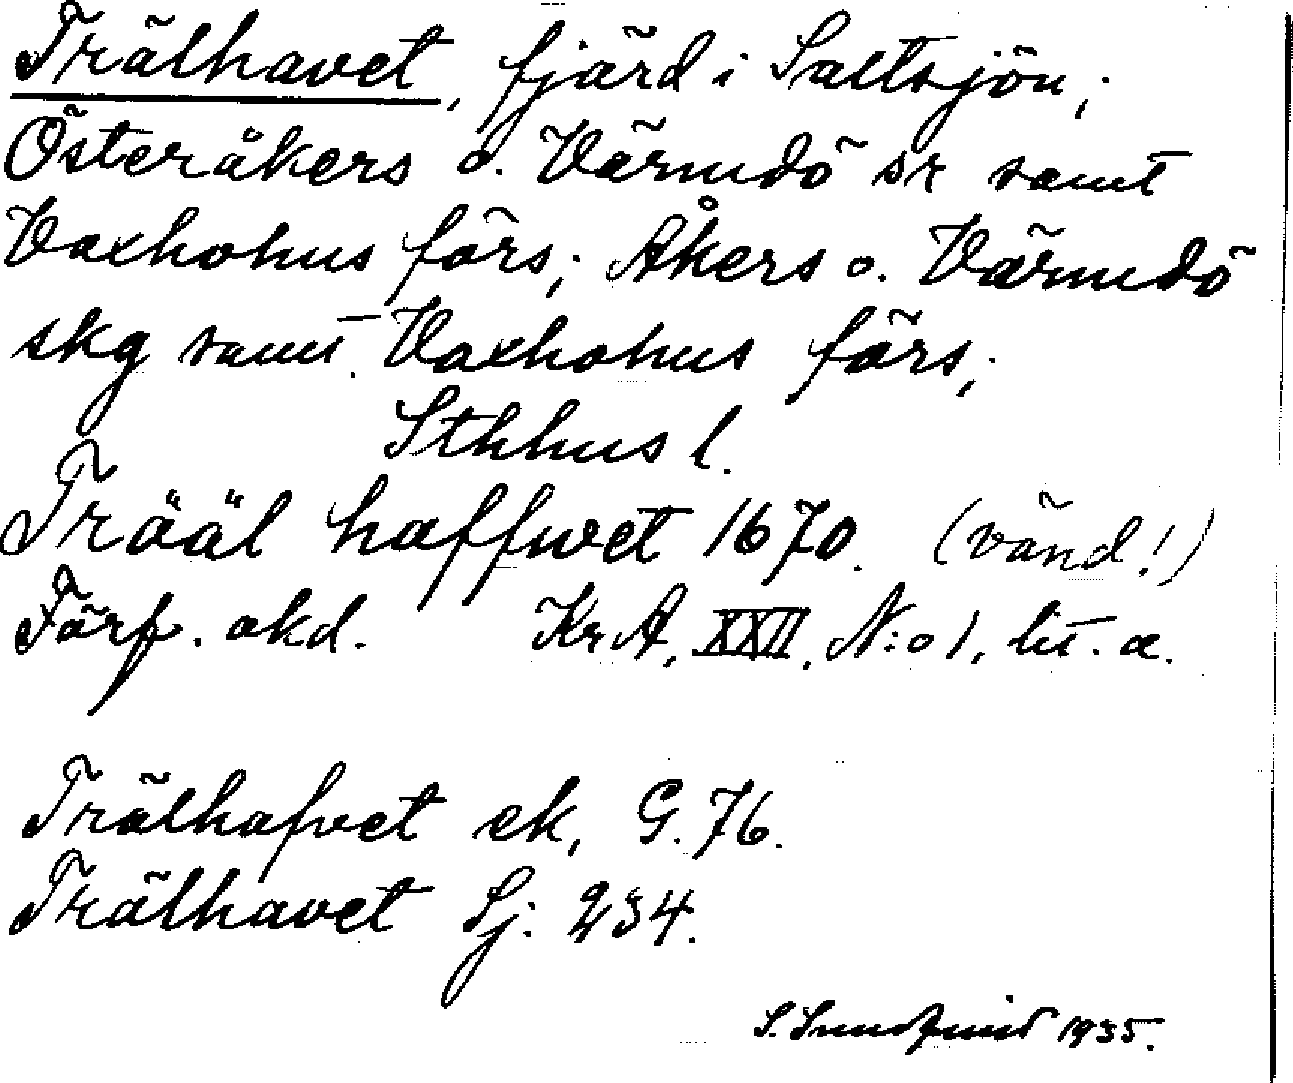 Trälhavet, fjärd i Saltsjön,
Österåkers o. Värmdö sr samt
Vaxholms förs; Åkers o. Värmdö
skg samt Vaxholms förs,
Sthlms l.
Trääl haffwet 1670. (vänd!)
Förf. okd. KrA, XXII, N:o 1, lit. a.
Trälhafvet ek, G. 76.
Trälhavet Sj. 234.
S. Sundqvist 1935.